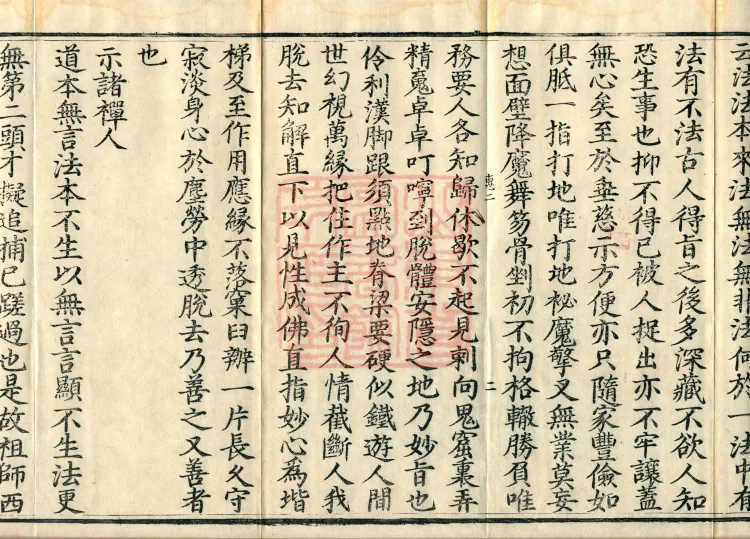 云法法本來法無法無非法何於一法中有
法有不法古人得旨之後多深藏不欲人知
恐生事也抑不得已被人捉出亦不牢讓蓋
無心矣至於垂慈示方便亦只隨家豐儉如
俱胝一指打地唯打地祕魔擎叉無業莫妄
想面壁降魔舞笏骨剉初不拘格轍勝負唯
務要人各知歸休歇不起見刺向鬼窟裏弄
二
精䰟卓卓叮嚀到脫體安隱之地乃妙旨也
伶利漢脚跟須點地脊梁要硬似鐵遊人間
世幻視萬緣把住作主不徇人情截斷人我
脫去知解直下以見性成佛直指妙心為堦
梯及至作用應緣不落窠臼辦一片長久守
寂淡身心於塵勞中透脫去乃善之又善者
也
示諸禪人
道本無言法本不生以無言言顯不生法更
無第二頭才擬追捕已蹉過也是故祖師西